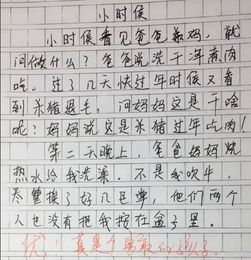 小时候
小时候看见爸爸杀鸡，就
问做什么？爸爸说洗干净煮肉
吃。过了几天快过年时候又看
到杀猪退毛，问妈妈这是干啥
呢？妈妈说这是杀猪过年吃肉！
第二天晚上，爸爸妈妈烧
热水给我洗澡。不是我吹牛，
尽管挨了好几巴掌，他们两个
人也没有把我摁在盆子里。
优！真是个勇敢的孩子。